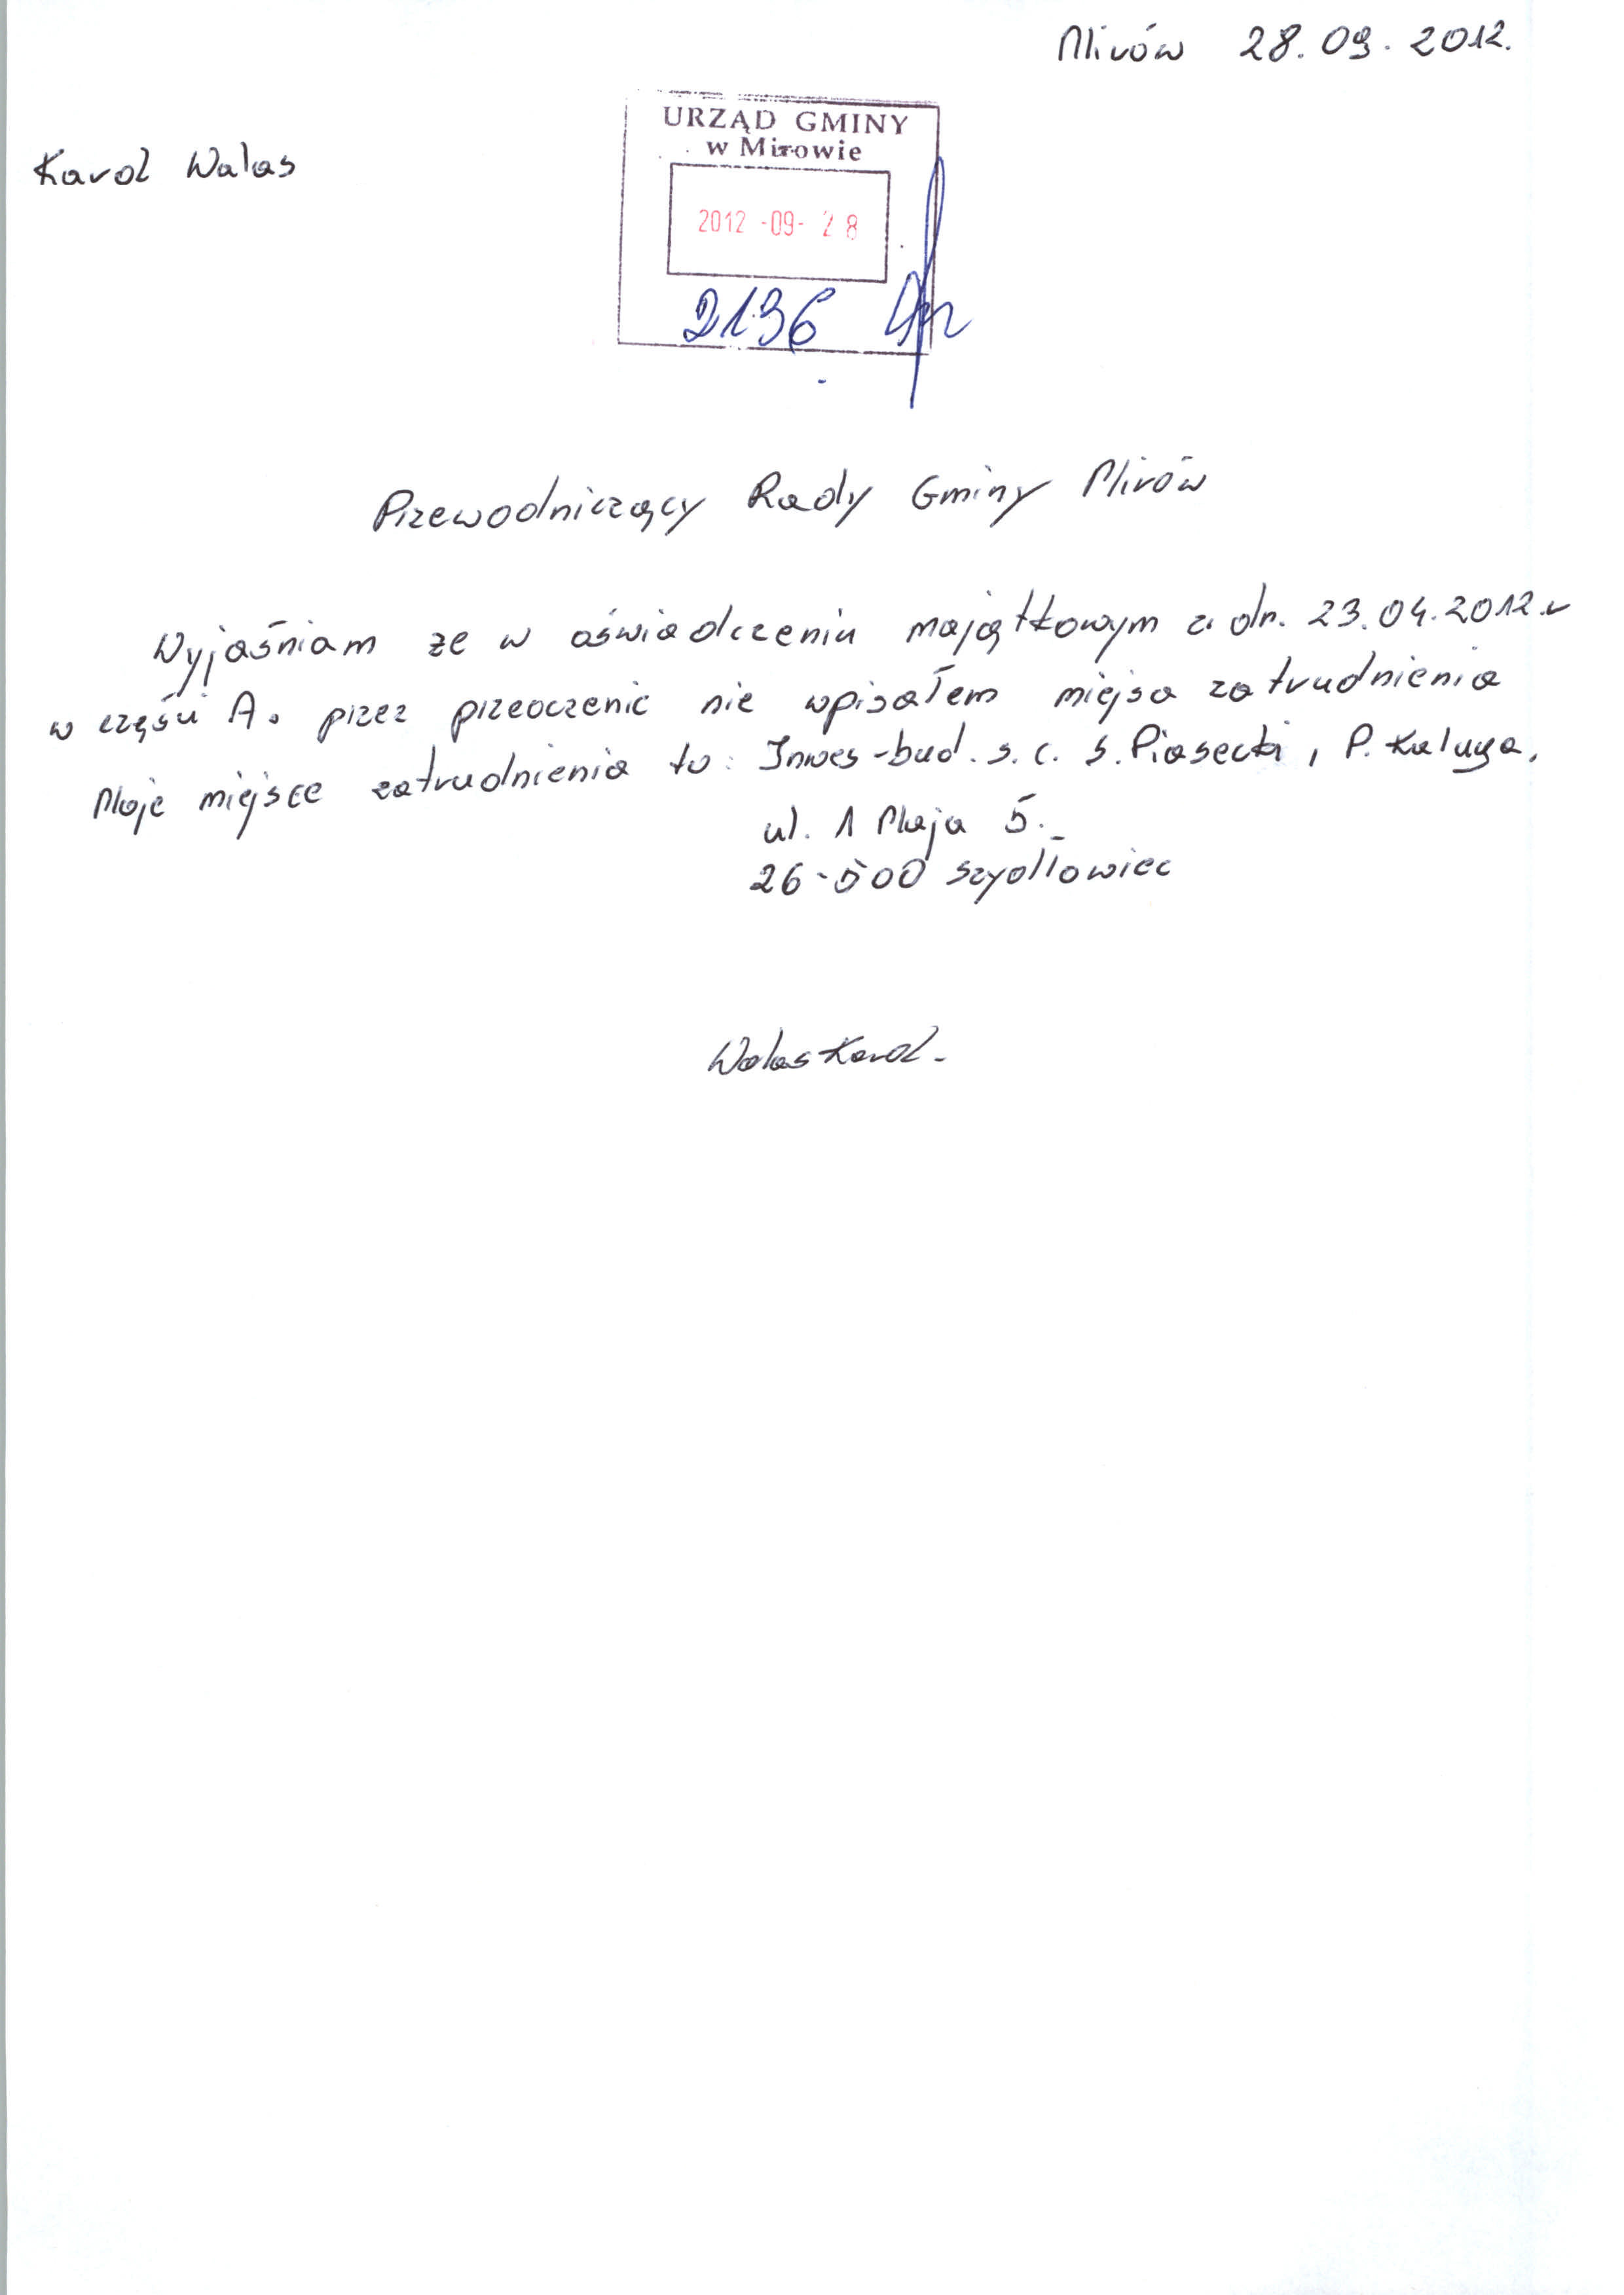 Mirów 28.09.2012.
URZĄD GMINY
w Mirowie
Karol Walas
2012 -09- 28
2136
Przewodniczący Rady Gminy Mirów
Wyjaśniam że w oświadczeniu majątkowym z dn. 23.04.2012r
w części A. przez przeoczenie nie wpisałem miejsca zatrudnienia
Moje miejsce zatrudnienia to: Inwes-bud. s.c. S.Piasecki, P.Kaluga,
ul. 1 Maja 5.
26-500 Szydłowiec
Walas Karol